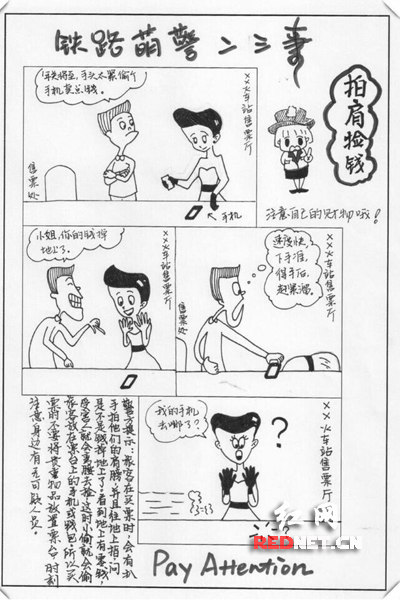 铁路萌警二三事
年关将至，手头太紧偷个
手机变点钱。
××火车站售票厅
售票处
手机
拍肩捡钱
注意自己的财物哦！
小姐，你的钱掉
地上了。
××火车站售票厅
速度快，
下手准，
得手后，
赶紧溜。
××火车站售票厅
售票处
我的手机
去哪了？
？
××火车站售票厅
警方提示：旅客在买票时，会有扒
手拍他们的肩膀，并且往地上指，问
是不是钱掉地上了，看到地上有零钱，
受害人就会弯腰去捡，这时小偷就会偷
旅客放在票台上的手机或钱包，所以买
票时不要将贵重物品放置票台，时刻
注意身边有无可疑人员。
Pay Attention
红网
REDNET.CN